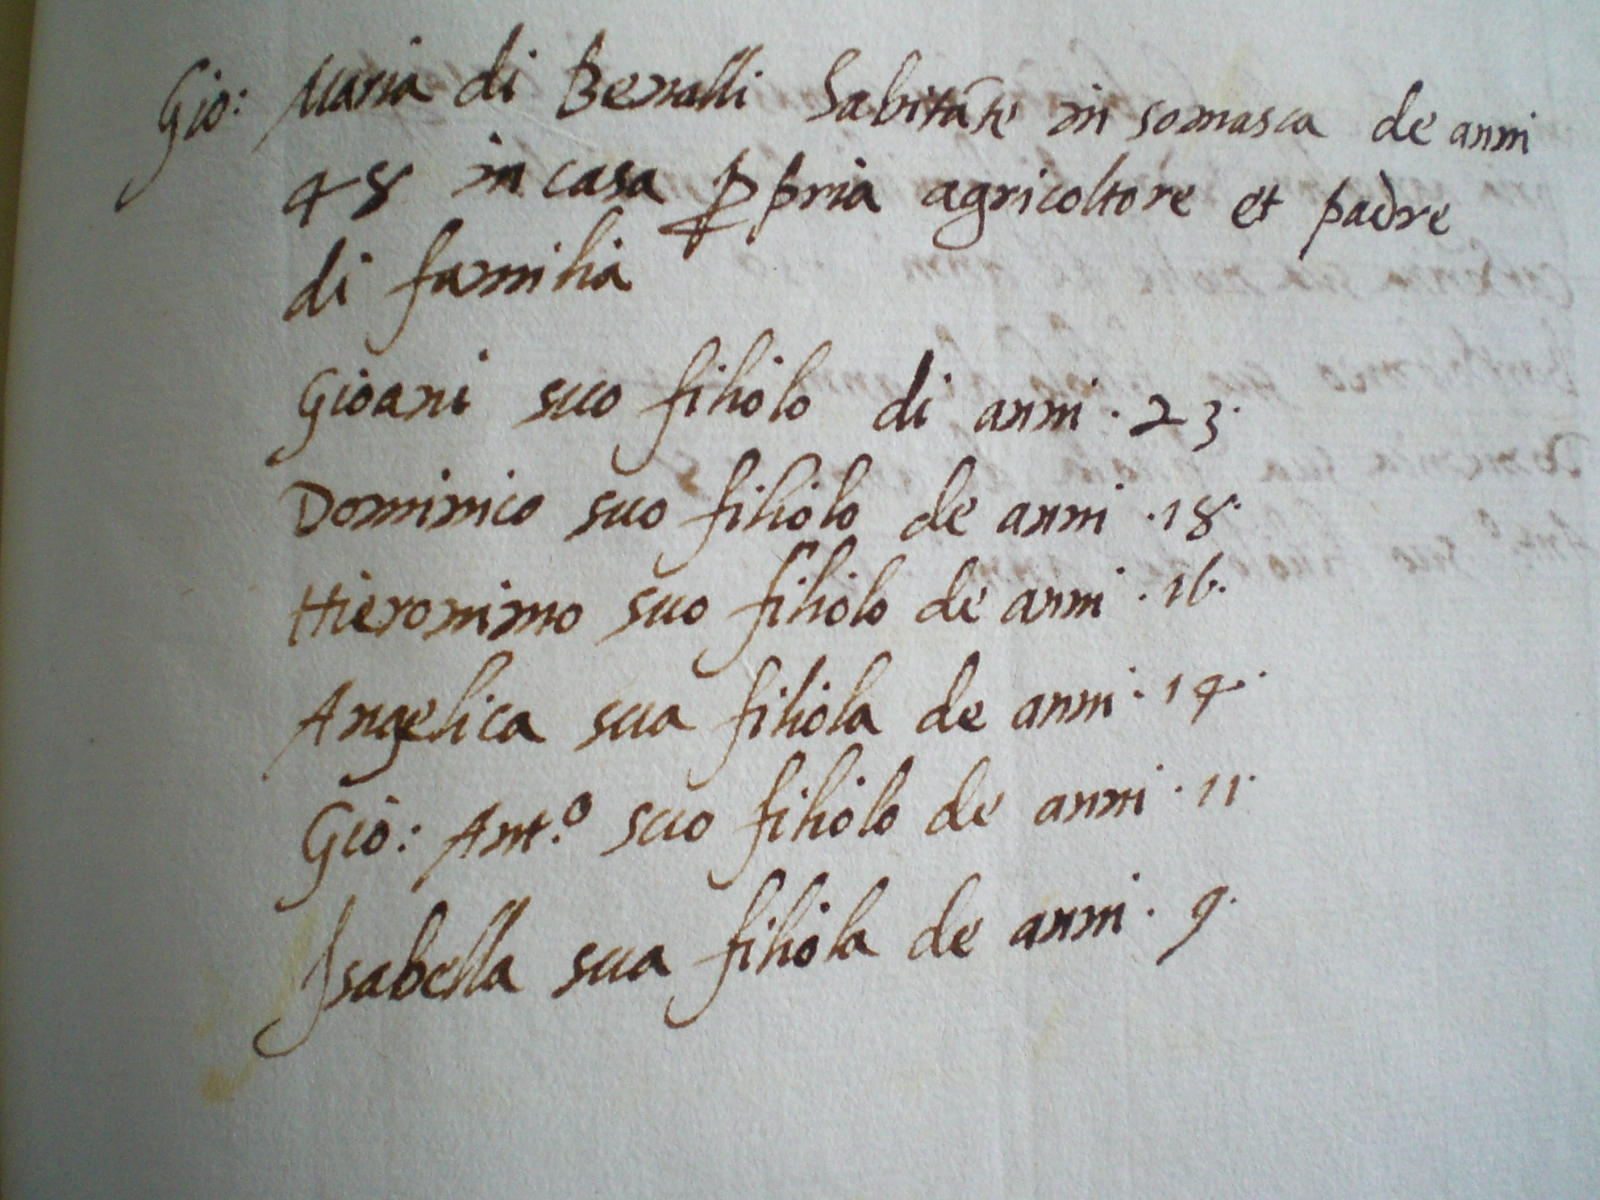 Gio: Maria di Benalli habitãte in somasca de anni
48 in casa ꝓpria agricoltore et padre
di familia
Gioani suo filiolo di anni · 23 ·
Dominico suo filiolo de anni · 18 ·
Hieronimo suo filiolo de anni · 16 ·
Angelica sua filiola de anni · 14 ·
Gio: Ant.º suo filiolo de anni · 11 ·
Isabella sua filiola de anni · 9 ·